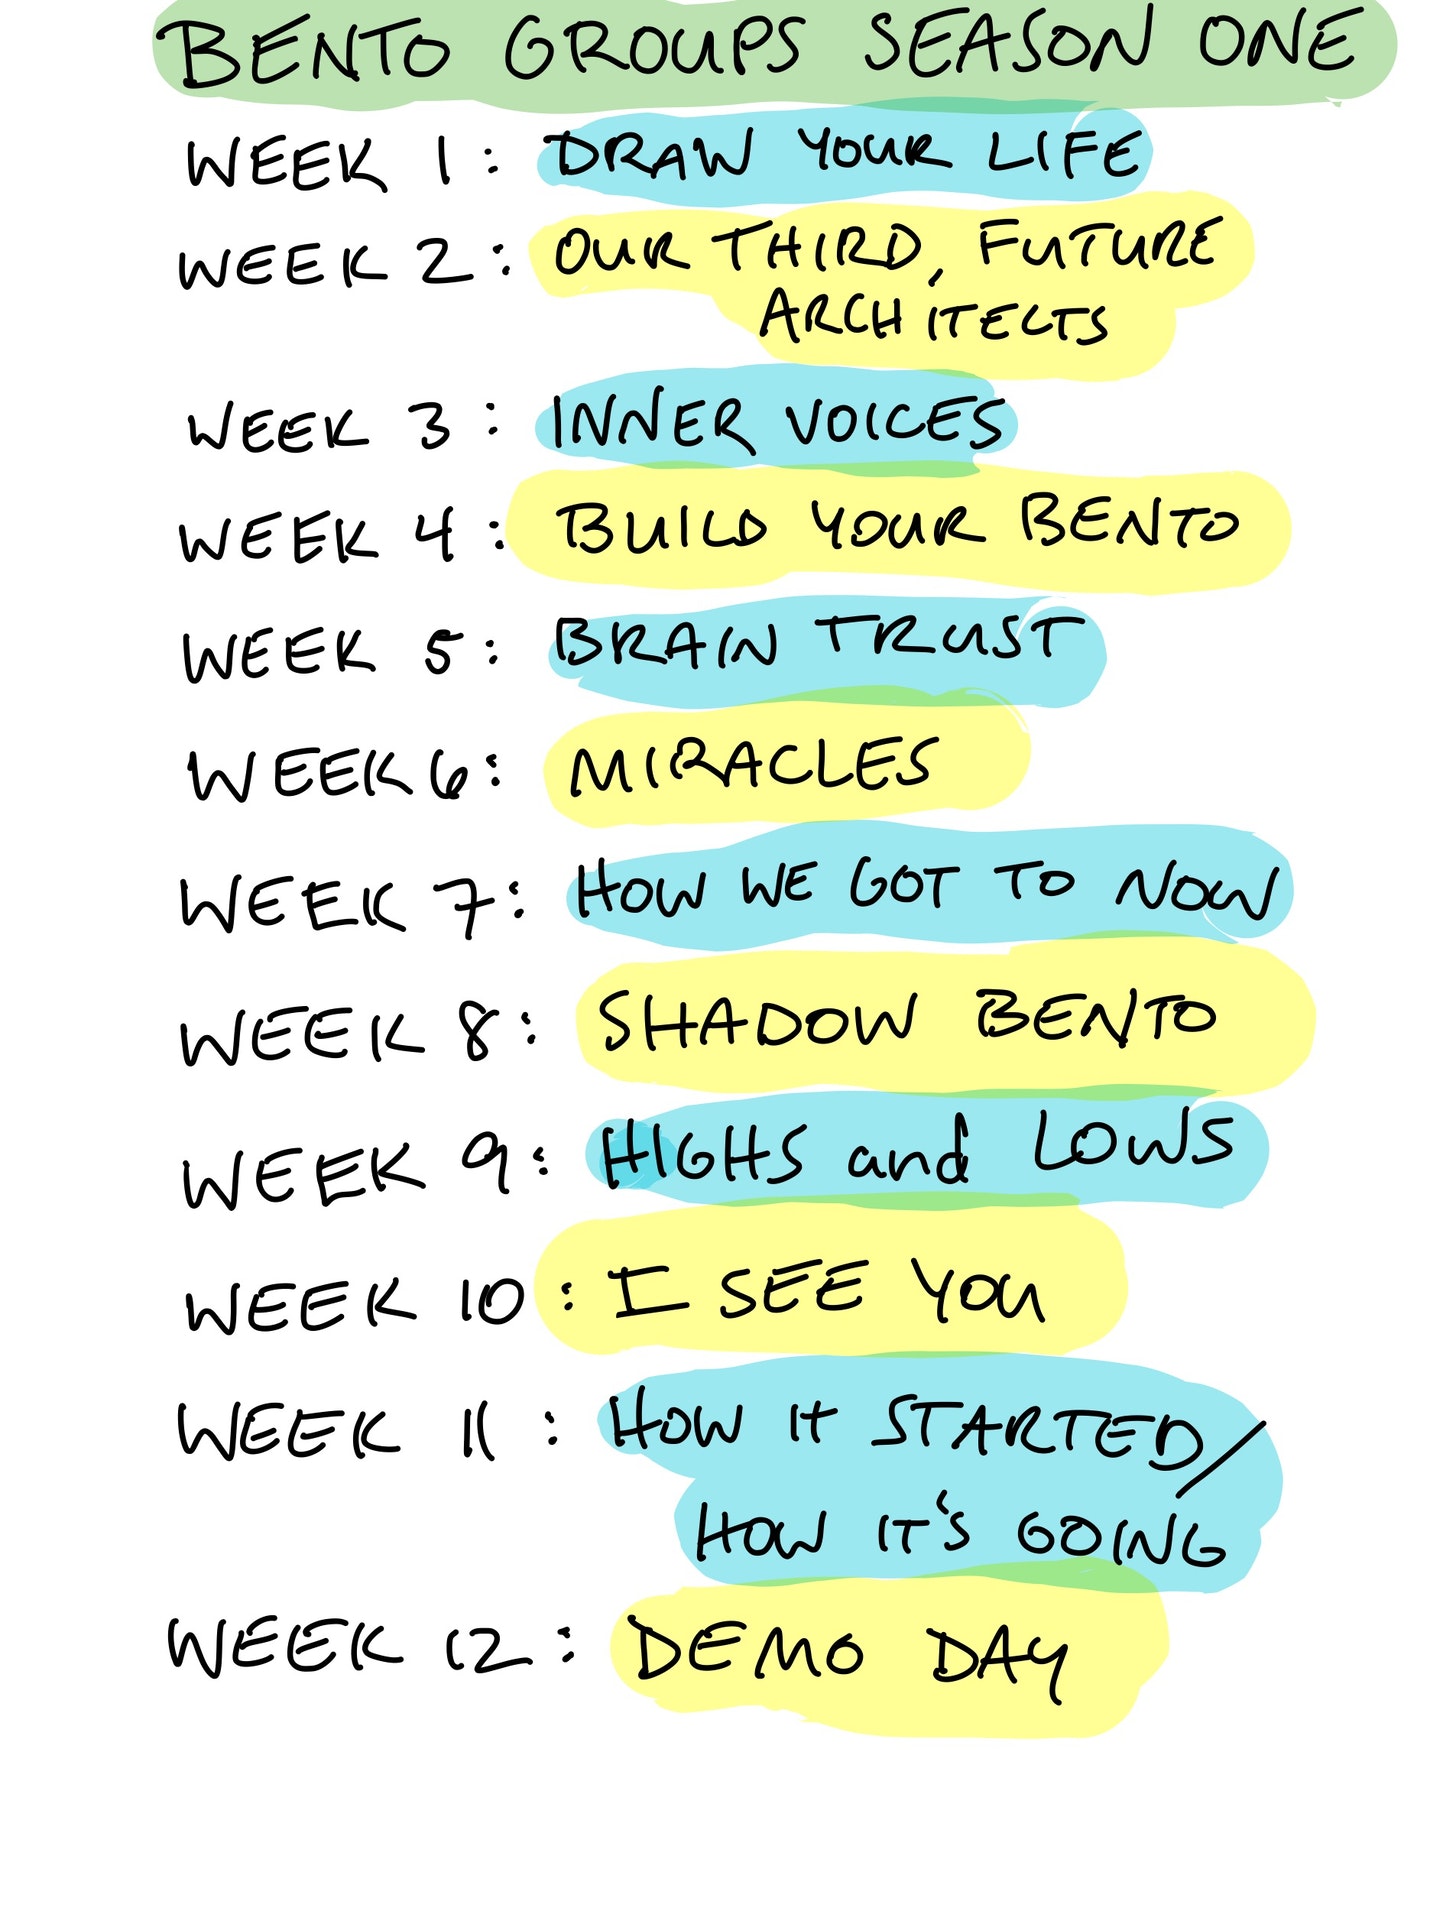 BENTO GROUPS SEASON ONE
WEEK 1: DRAW YOUR LIFE
WEEK 2: OUR THIRD, FUTURE
ARCHITECTS
WEEK 3: INNER VOICES
WEEK 4: BUILD YOUR BENTO
WEEK 5: BRAIN TRUST
WEEK 6: MIRACLES
WEEK 7: HOW WE GOT TO NOW
WEEK 8: SHADOW BENTO
WEEK 9: HIGHS and LOWS
WEEK 10: I SEE YOU
WEEK 11: HOW IT STARTED/
HOW IT'S GOING
WEEK 12: DEMO DAY